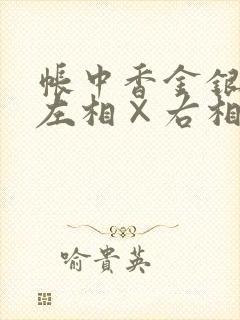 帳中香金銀
左相×右相
喻貴英